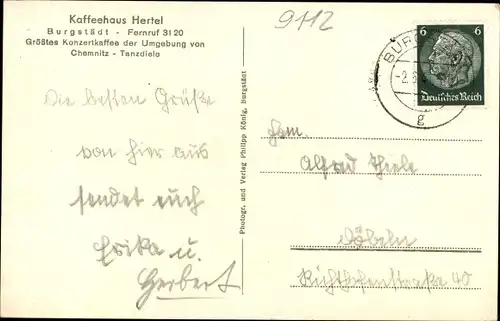 Kaffeehaus Hertel
Burgstädt - Fernruf 3120
Größtes Konzertkaffee der Umgebung von
Chemnitz - Tanzdiele
9112
6 6
Deutsches Reich
BURG
-2.6
g
Die besten Grüße
von hier aus
sendet euch
Erika u.
Herbert
Photogr. und Verlag Philipp König, Burgstädt
Fam.
Alfred Thiele
Döbeln
Richthofenstraße 40